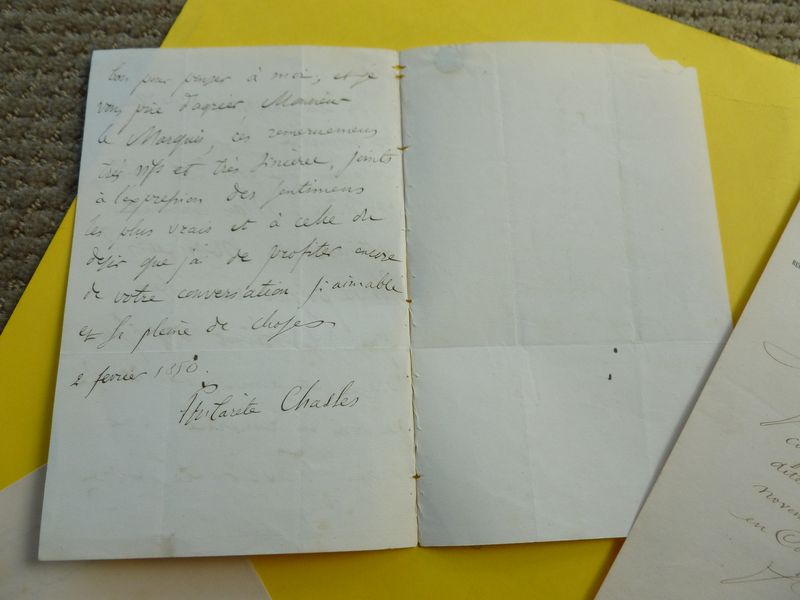 bon pour penser à moi, et je
vous prie d'agréer, Monsieur
le Marquis, ces remercîmens
très vifs et très sincères, joints
à l'expression des sentimens
les plus vrais et à celle du
désir que j'ai de profiter encore
de votre conversation si aimable
et si pleine de choses
2 février 1850.
Philarète Chasles
dite
novem
en C